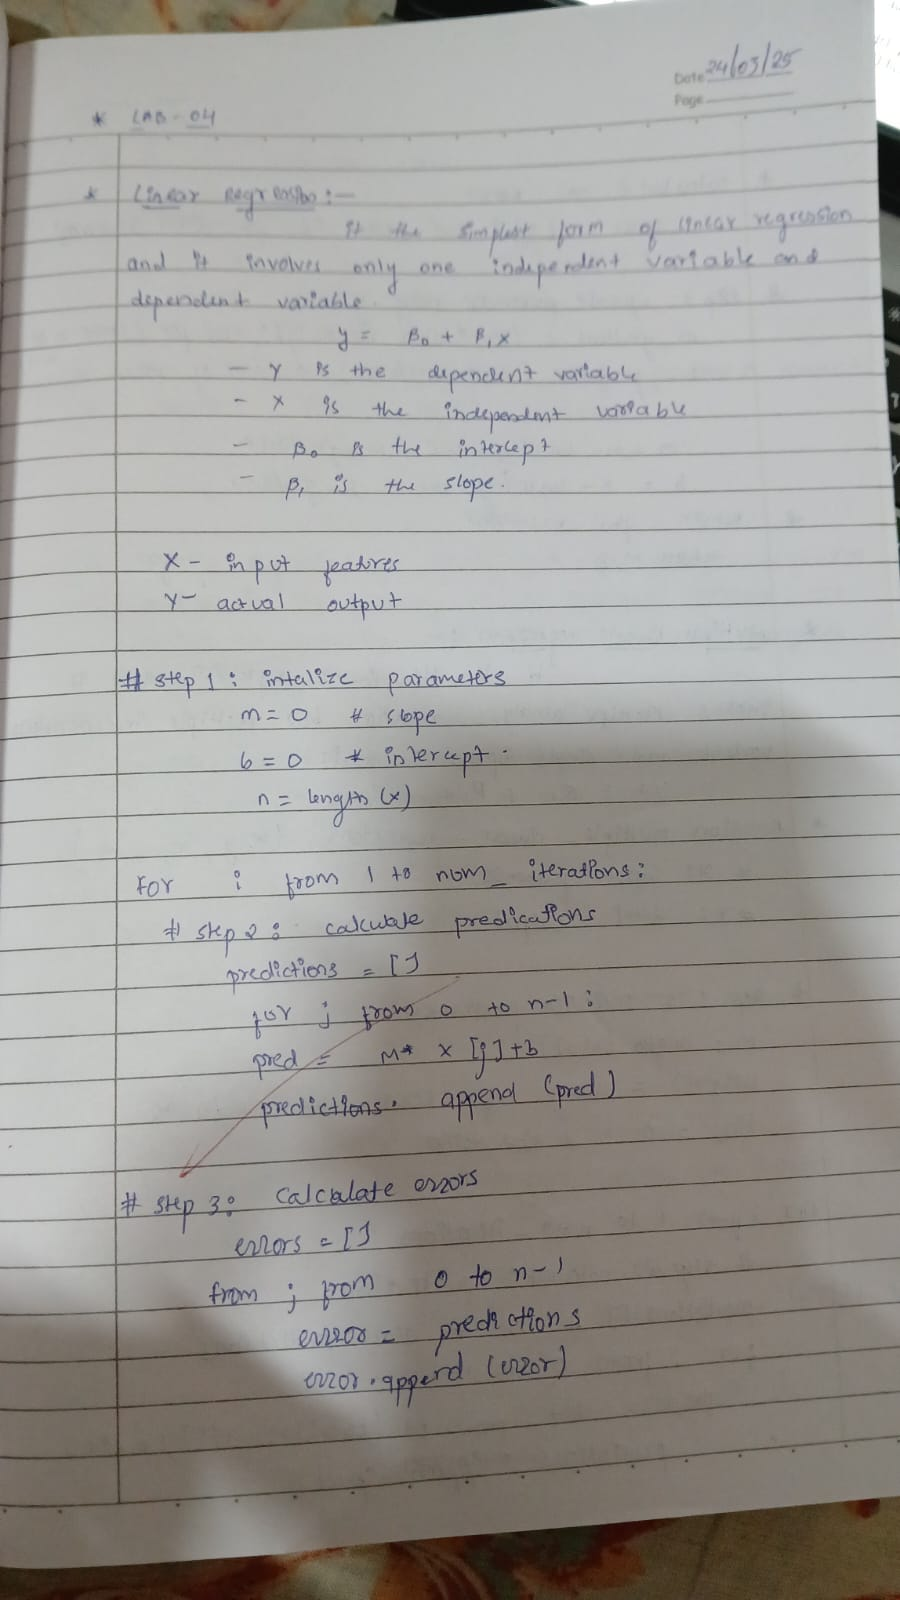 Date 24/03/25
Page
* LAB - 04
* Linear Regression :-
it the simplest form of linear regression
and it involves only one independent variable and
dependent variable.
y = β₀ + β₁x
- Y is the dependent variable
- x is the independent variable
- β₀ is the intercept
- β₁ is the slope.
X - input features
Y - actual output
# step 1 : intalize parameters
m = 0 # slope
b = 0 * intercept.
n = length (x)
For i from 1 to num_iterations:
# step 2 : calculate predications
predictions = []
for j from 0 to n-1 :
pred = M* x [j] + b
predictions. append (pred)
# step 3: Calculate errors
errors = []
from j from 0 to n-1
error = predictions
error.append (error)